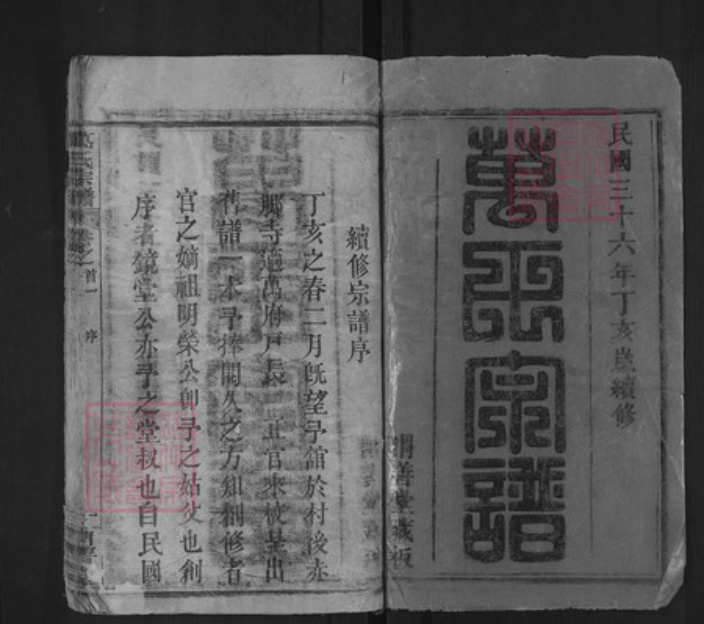 民國三十六年丁亥歲續修
萬氏宗譜
善堂藏板
續修宗譜序
丁亥之春二月既望予舘於村後赤
鄉寺適萬府戶長 正官來校呈出
舊譜一本予捧閱久之方知捌修者
官之嫡祖明榮公卽予之姑丈也創
序者鏡堂公亦予之堂叔也自民國
萬氏宗譜 卷之首一 序